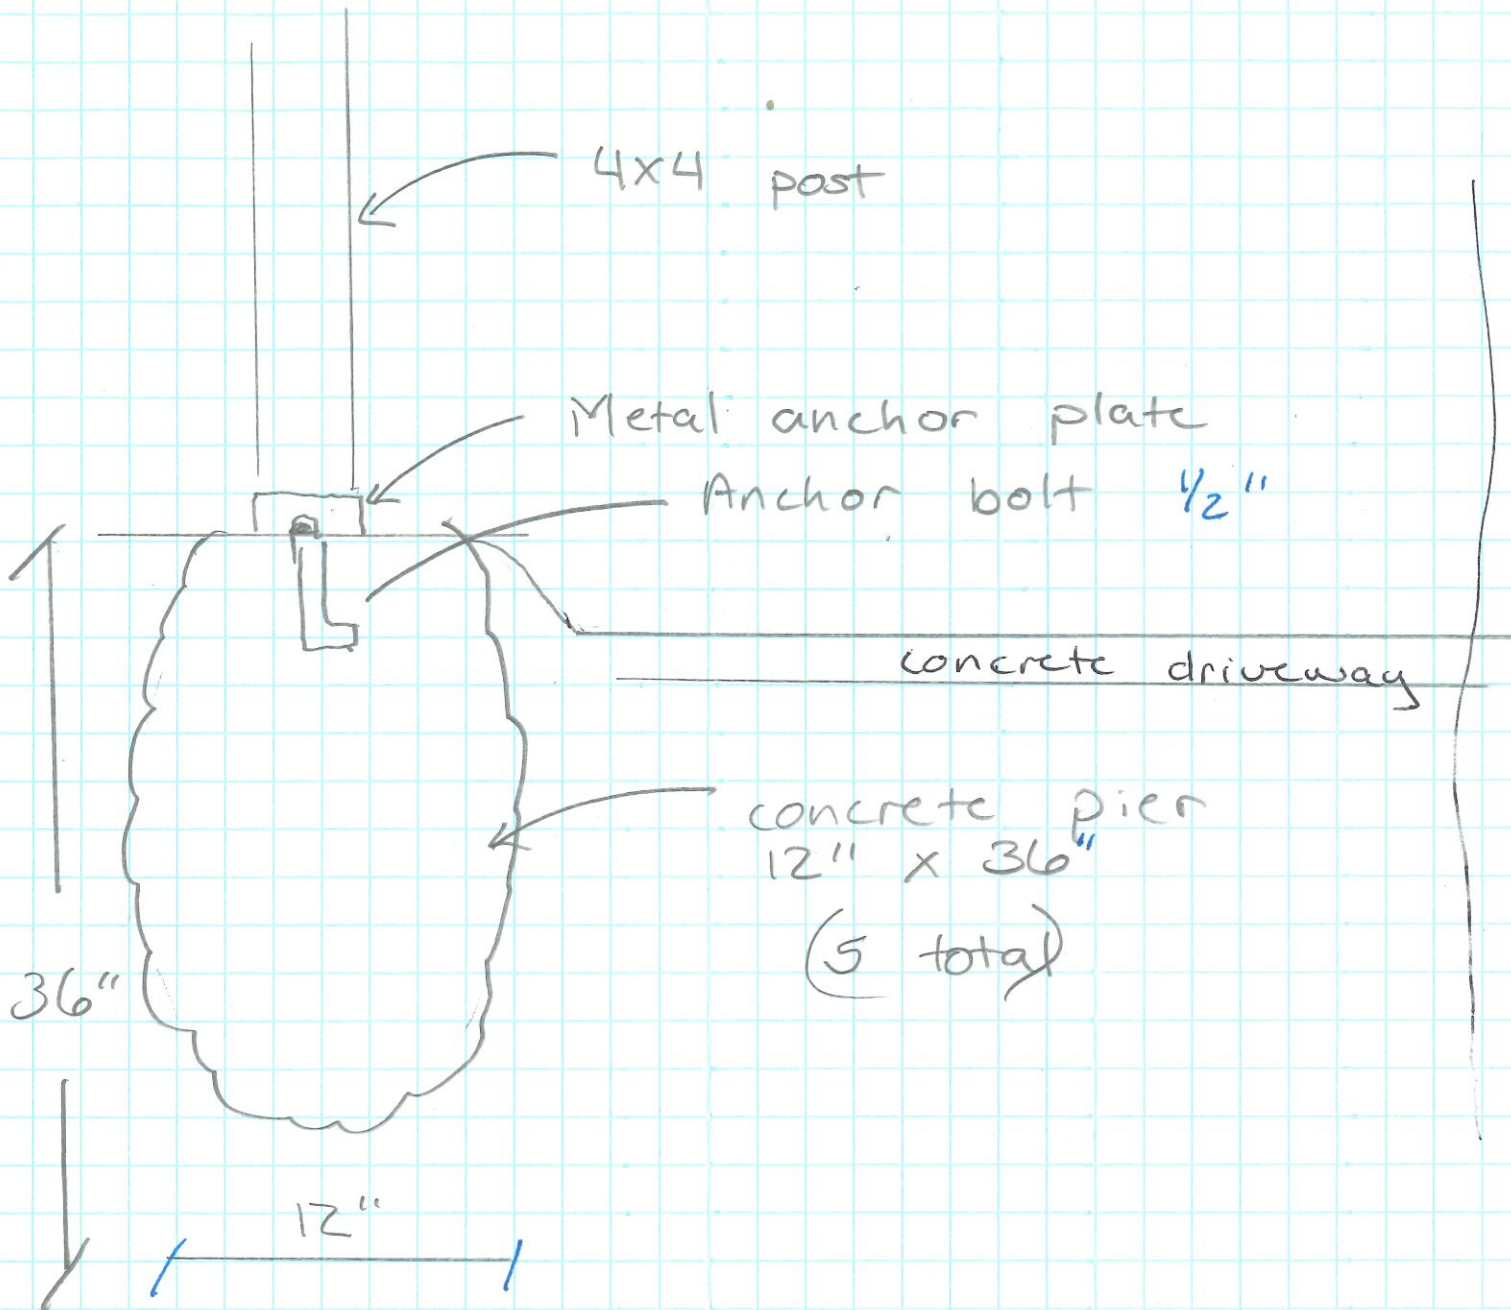 4x4 post
Metal anchor plate
Anchor bolt 1/2"
concrete driveway
concrete pier
12" x 36"
(5 total)
36"
12"